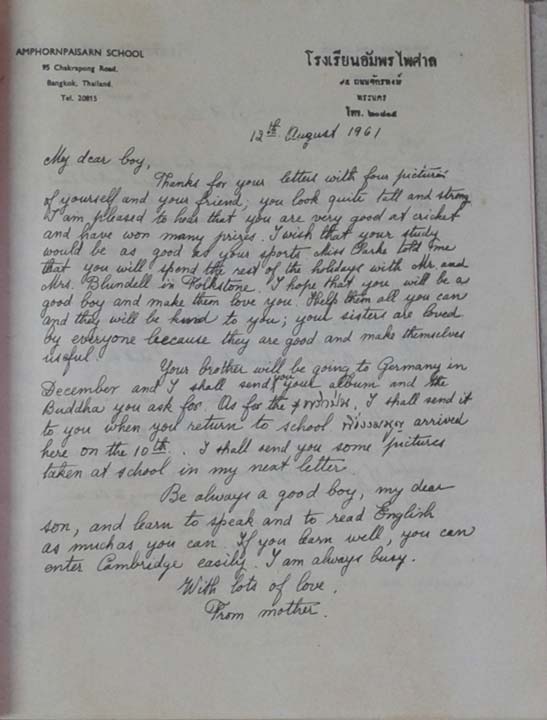 AMPHORNPAISARN SCHOOL
95 Chakrapong Road.
Bangkok, Thailand.
Tel. 20815
โรงเรียนอัมพรไพศาล
๙๕ ถนนจักรพงษ์
พระนคร
โทร. ๒๐๘๑๕
12th August 1961
My dear boy,
Thanks for your letters with four pictures
of yourself and your friend; you look quite tall and strong
I am pleased to hear that you are very good at cricket
and have won many prizes. I wish that your study
would be as good as your sports. Miss Clarke told me
that you will spend the rest of the holidays with Mr. and
Mrs. Blundell in Folkstone. I hope that you will be a
good boy and make them love you. Help them all you can
and they will be kind to you; your sisters are loved
by everyone because they are good and make themselves
useful.
Your brother will be going to Germany in
December and I shall send you your album and the
Buddha you ask for. As for the I shall send it
to you when you return to school. arrived
here on the 10th. I shall send you some pictures
taken at school in my next letter.
Be always a good boy, my dear
son, and learn to speak and to read English
as much as you can. If you learn well, you can
enter Cambridge easily. I am always busy.
With lots of love.
From mother.